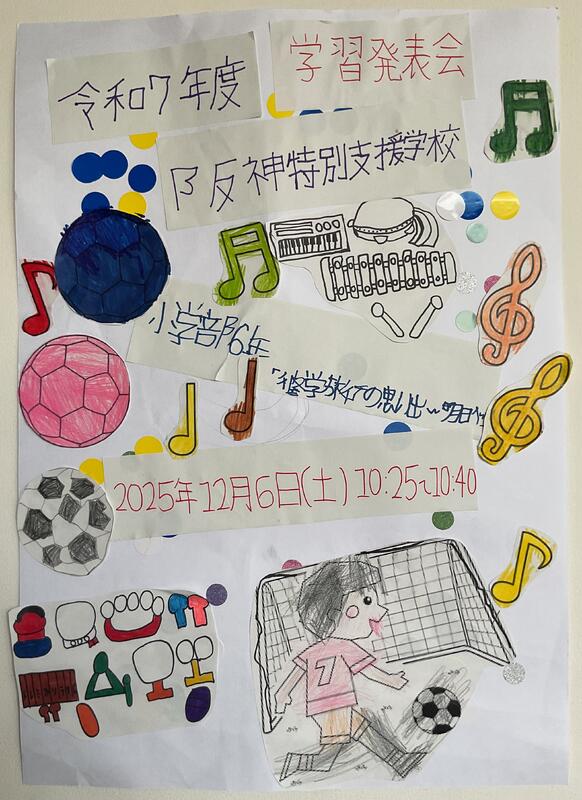 令和7年度
学習発表会
阪神特別支援学校
小学部6年
「修学旅行の思い出〜明日へ
2025年12月6日(土) 10:25〜10:40
7